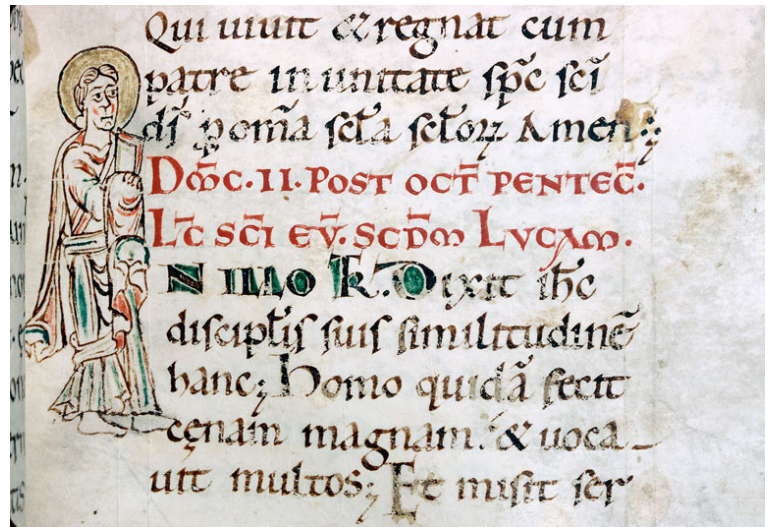 Qui uiuit & regnat cum
patre in unitate sp̄c sc̄i
dī p om̄a sc̄la sc̄loꝝ Amen:
Dōc·II·POST OCT̄ PENTEC̄.
Lc̄ SC̄I EV̄. SCD̄M LVCAM.
N ILLO T̄. Dixit ih̄c
discipl̄is suis similitudinē
hanc; Homo quidā fecit
cęnam magnam. & uoca
uit multos; Et misit ser